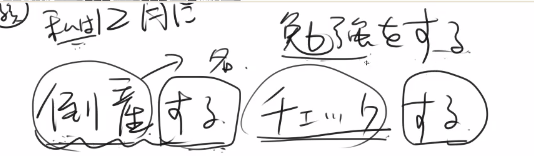 私は12月に
勉強をする
名.
倒産する チェックする